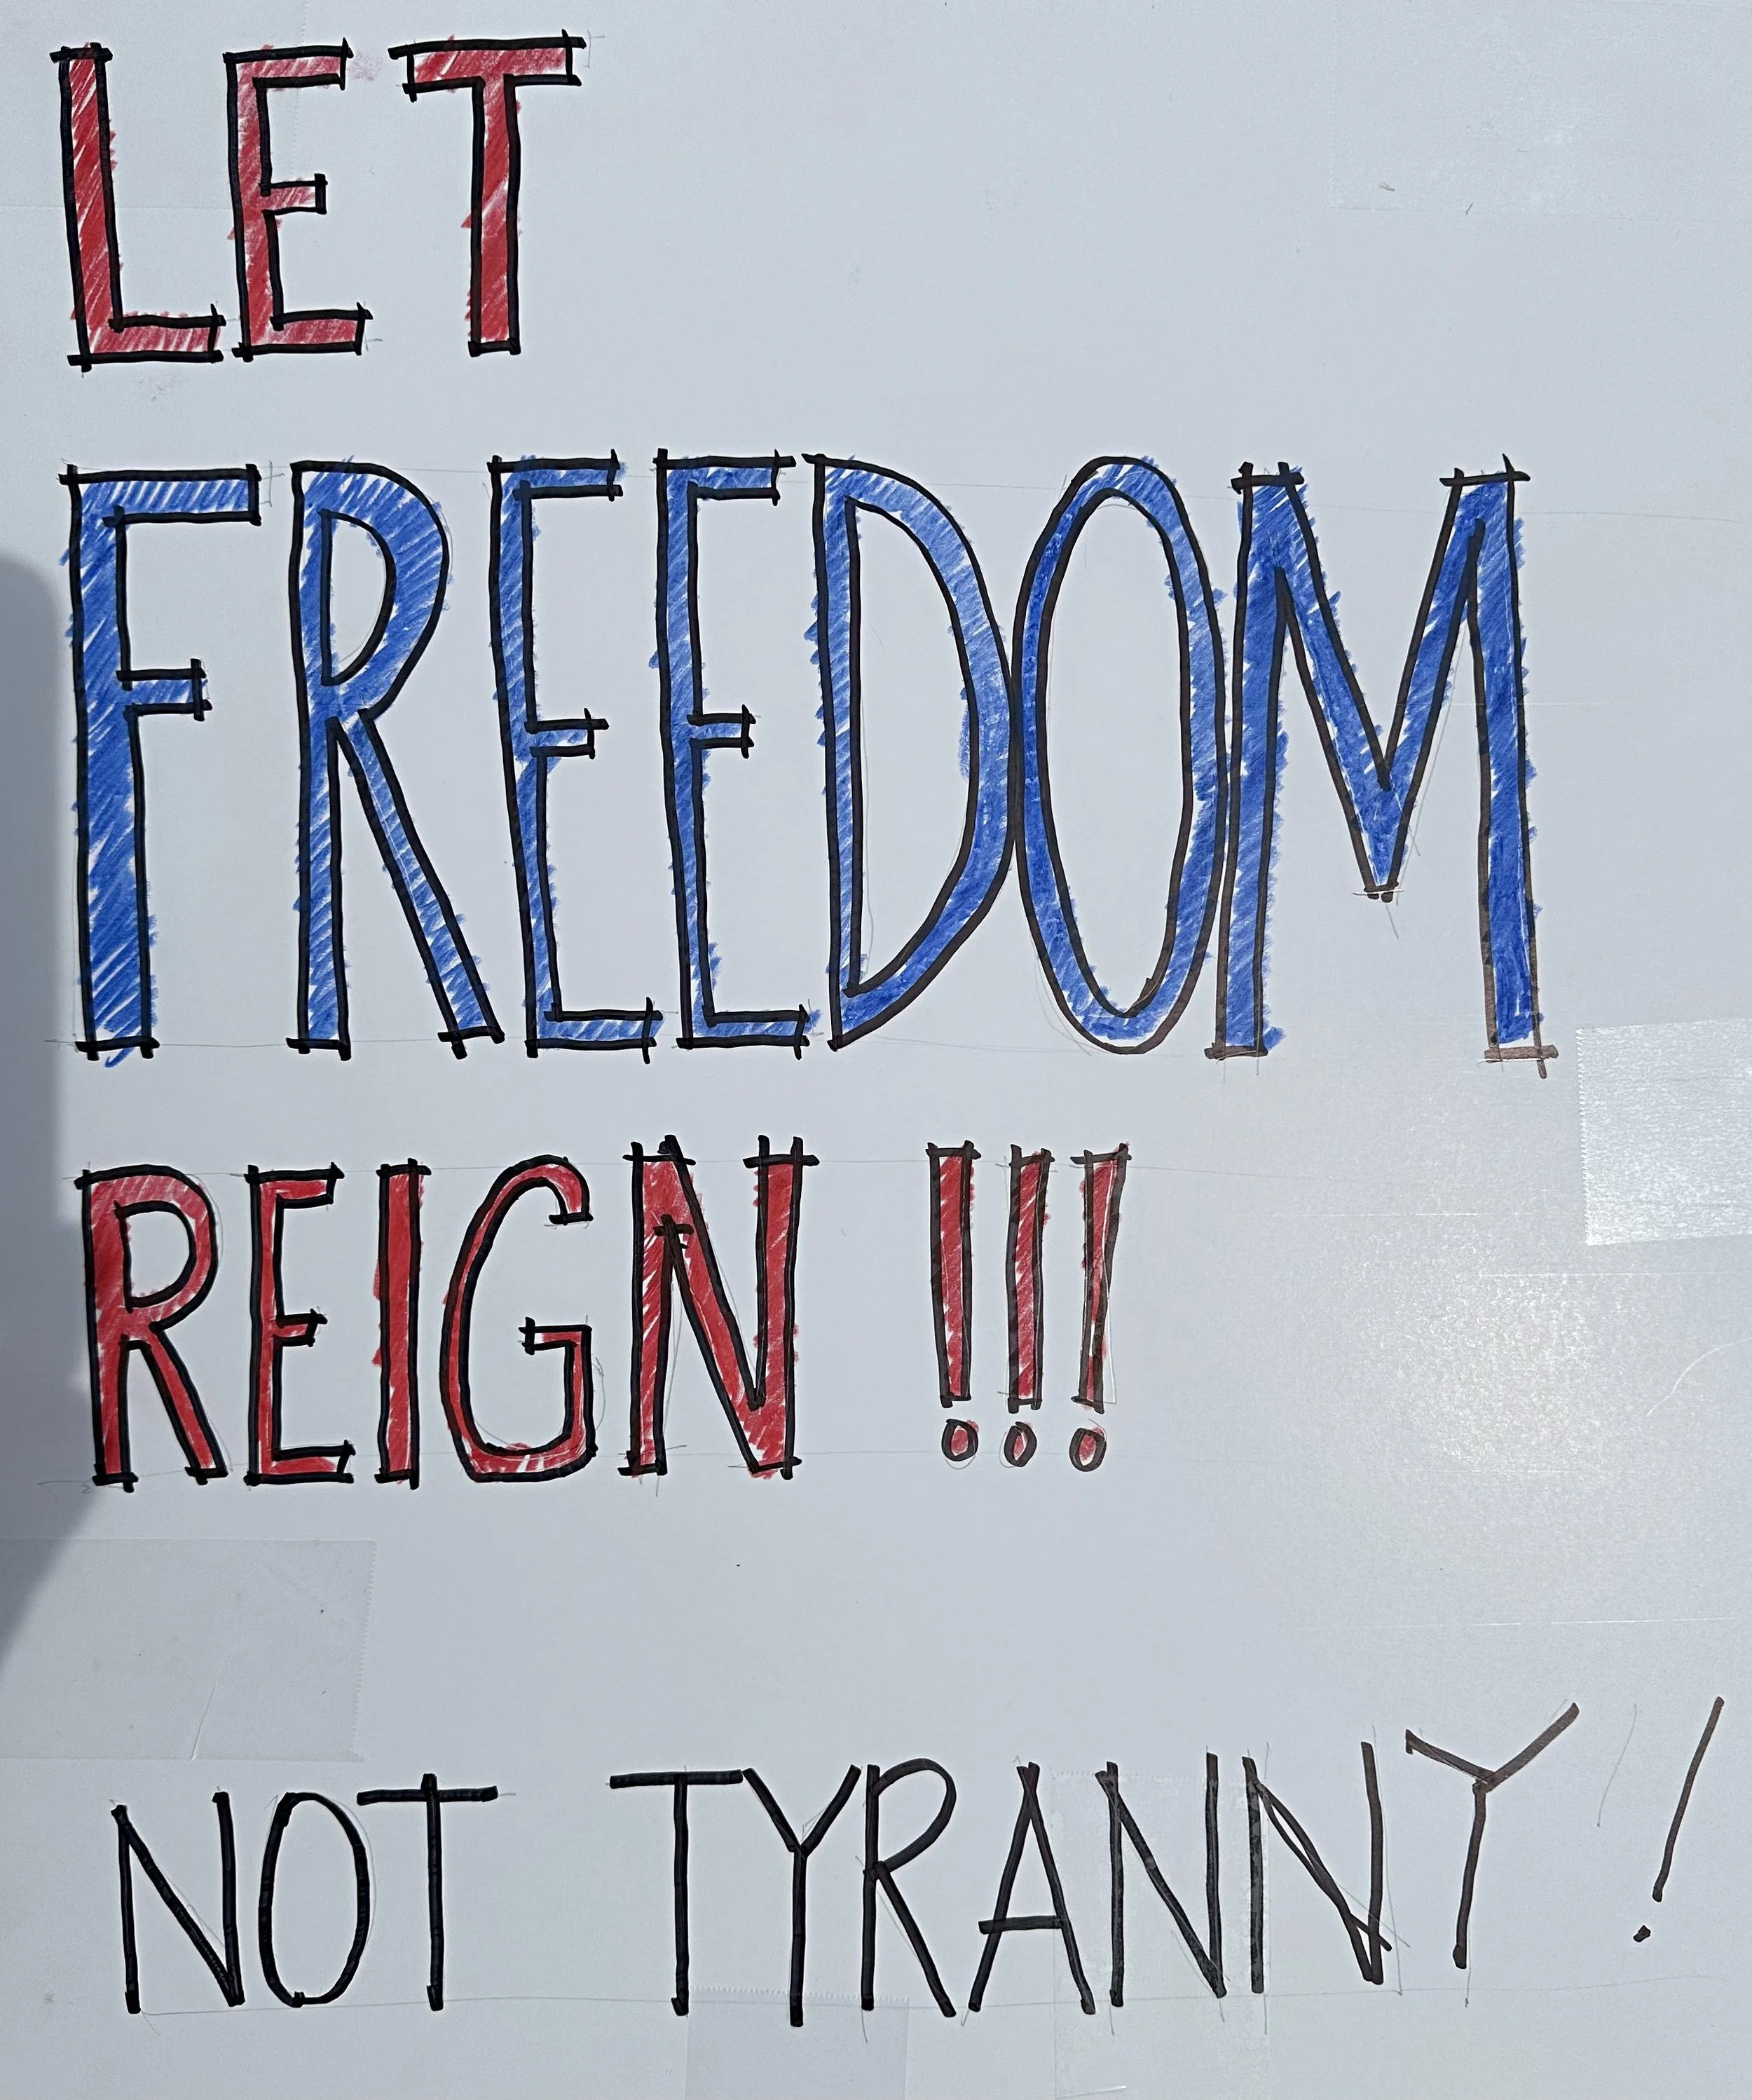 LET
FREEDOM
REIGN !!!
NOT TYRANNY !